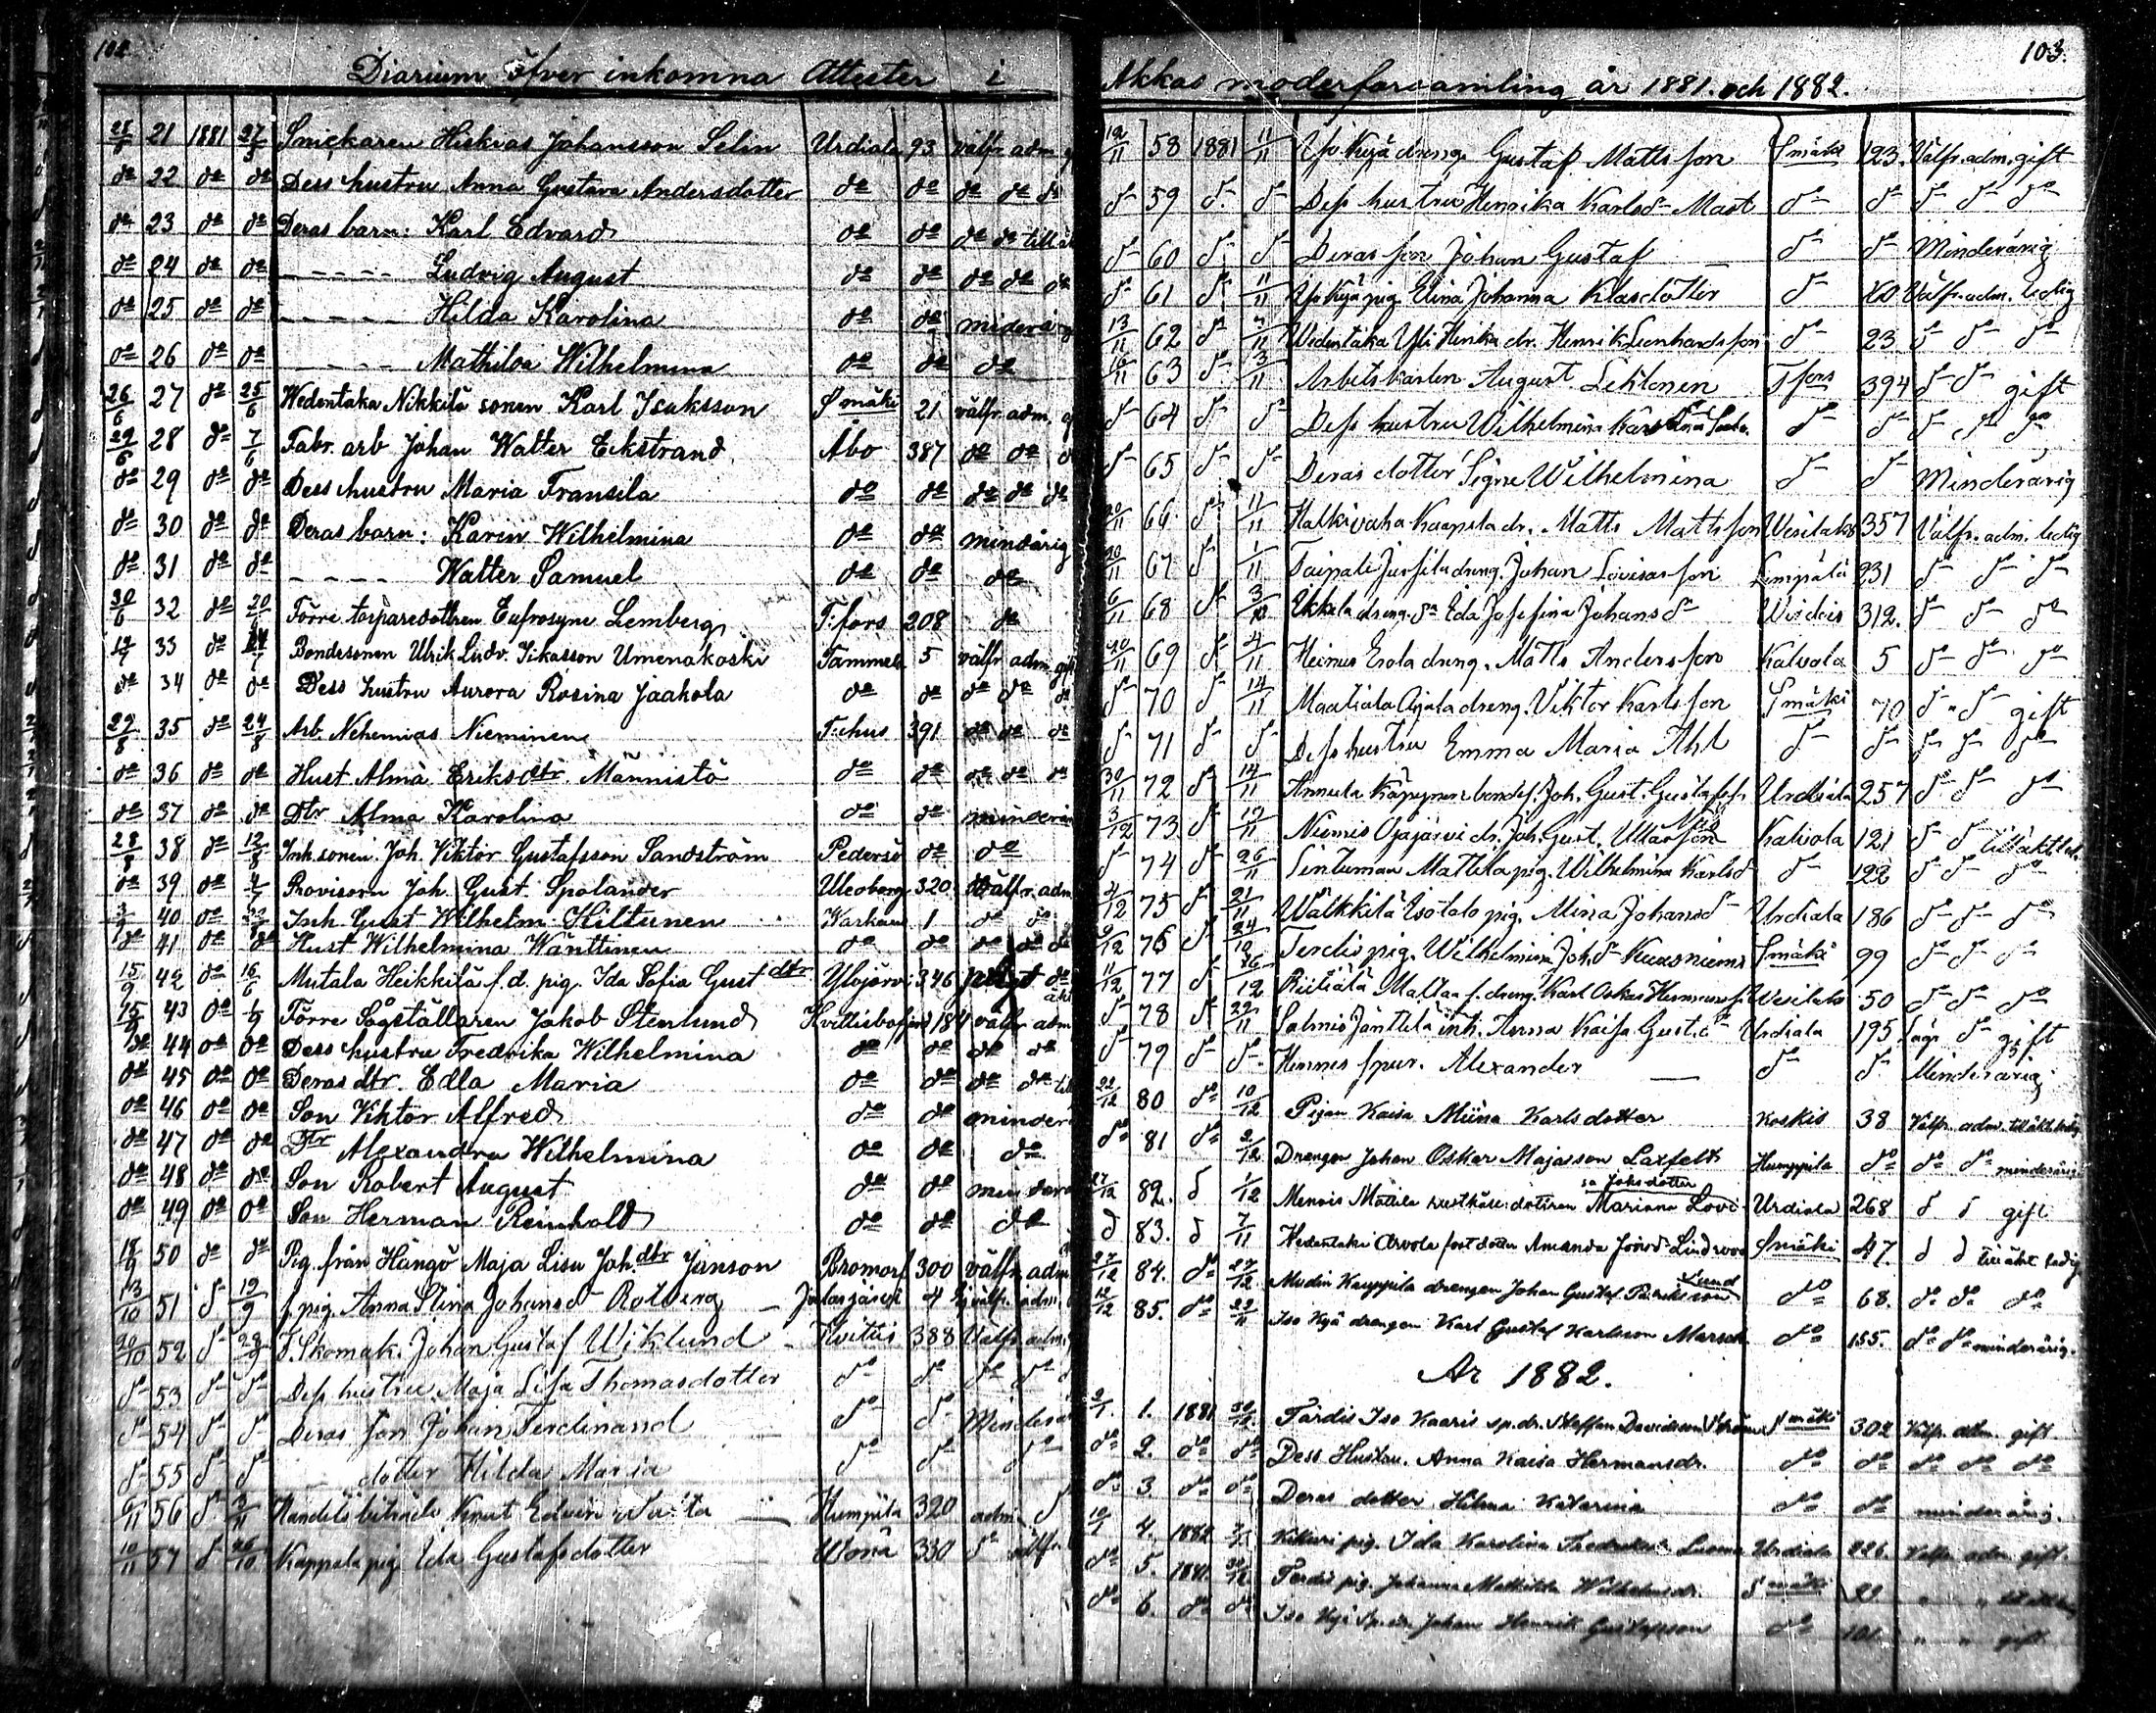 102
Diarium öfver inkomna Attester i
28/5 21 1881 27/5 Snickaren Hiskias Johansson Selin Urdiala 93 välfr. adm
dº 22 dº dº Dess hustru Anna Gustava Andersdotter dº dº dº dº dº
dº 23 dº dº Deras barn: Karl Edvard dº dº dº dº till
dº 24 dº dº - - - - - Ludvig August dº dº dº dº dº
dº 25 dº dº - - - - - Hilda Karolina dº dº
dº 26 dº dº - - - - Mathilda Wilhelmina dº dº dº
26/6 27 dº 25/6 Wedentaka Nikkilä sonen Karl Isaksson Smäki 21 välfr. adm.
29/6 28 dº 7/6 Fabr. arb Johan Walter Eckstrand Åbo 387 dº dº
dº 29 dº dº Dess hustru Maria Fransila dº dº dº dº dº
dº 30 dº dº Deras barn: Karin Wilhelmina dº dº mindårig
dº 31 dº dº - - - - Walter Samuel dº dº dº
30/6 32 dº 20/6 Förre torparedottren Eufrosyne Lemberg T:fors 208 dº
33 dº Bondesonen Ulrik Ludv. Umenakoski Tammela 5 välfr adm
dº 34 dº dº Dess hustru Aurora Rosina Jaakola dº dº dº dº dº
29/8 35 dº 24/8 Arb. Nehemias Nieminen T:hus 391 dº dº dº
dº 36 dº dº Hust. Alma Eriksdtr. Männistö dº dº dº dº dº
dº 37 dº dº Dtr Alma Karolina dº dº
28/8 38 dº 12/8 Inh.sonen Joh. Viktor Gustafsson Sandström Pedersö dº dº
dº 39 dº Provisorn Joh. Gust. Spolander Uleåborg 320 Välfr. adm
3/9 40 dº Inh Gust Wilhelm Hiltunen Warkaus 1 dº dº
dº 41 dº dº Hust Wilhelmina Wänttinen dº dº dº dº dº
15/9 42 dº 16/6 Mutala Heikkilä f.d. pig. Ida Sofia Gustdtr Ylöjärvi 346
15/9 43 dº 1/9 Förre Sågställaren Jakob Stenlund 184 välfr adm
dº 44 dº dº Dess hustru Fredrika Wilhelmina dº dº dº dº
dº 45 dº dº Deras dtr. Edla Maria dº dº dº dº
dº 46 dº dº Son Viktor Alfred dº dº minder
dº 47 dº dº Dtr Alexandra Wilhelmina dº dº dº
dº 48 dº dº Son Robert August dº dº
dº 49 dº dº Son Herman Reinhold dº dº dº
18/9 50 dº dº Pig. från Hangö Maja Lisa Joh.dtr Janson Bromarf 300 välfr adm
13/10 51 dº 19/9 f. pig. Anna Stina Johansd Rotberg Jalasjärvi 4
20/10 52 dº F. Skomak. Johan Gustaf Wiklund Kvittis 388 Välfr. adm.
dº 53 dº dº Dess hustru Maja Lisa Thomasdotter dº dº dº dº
dº 54 dº dº Deras son Johan Ferdinand dº dº
dº 55 dº dº dotter Hilda Maria dº dº dº
6/11 56 dº 3/11 Handelsbiträde Knut Edvin Humpila 320 adm
10/11 57 dº 26/10 Kappala pig Eda Gustafsdotter Wånå 330 dº

103.
Akkas moderförsamling år 1881. och 1882.
12/11 58 1881 11/11 Yso Kyä dreng. Gustaf Matts son Smäki 123. Välfr. adm. gift
dº 59 dº dº Dess hustru Henrika Karlsd Mast dº dº dº dº dº
dº 60 dº dº Deras son Johan Gustaf dº dº Minderårig
dº 61 dº 11/11 Yso Kyä pig Elina Johanna Klasdotter dº Välfr. adm. ledig
13/11 62 dº Wedentaka Yli Heikä dr. Henrik Leonhardsson dº 23 dº dº dº
16/11 63 dº 3/11 Arbetskarlen August Lehtonen Tfors 394 dº dº gift
dº 64 dº dº Dess hustru Wilhelmina dº dº dº dº dº
dº 65 dº dº Deras dotter Signe Wilhelmina dº dº Minderårig
20/11 66 dº 11/11 Halkivaha Kaapila dr. Matts Mattsson Wesilaks 357 Välfr. adm. ledig
20/11 67 dº 1/11 Taipale Jussila dreng. Johan Lovisas son Lempälä 231 dº dº dº
6/11 68 dº Ukkola Eda Josefina Johansd Wirdois 312. dº dº dº
20/11 69 dº 4/11 Heinus Erola dreng. Matts Andersson Kalvola 5 dº dº dº
dº 70 dº 14/11 Maatiala Ajala dreng. Viktor Karlsson Smäki 70 dº dº gift
dº 71 dº dº Dess hustru Emma Maria Ahl dº dº dº dº dº
30/11 72 dº 14/11 Annula bondes. Joh. Gust. Gustafss. Urdiala 257 dº dº dº
3/12 73 dº 19/11 Niemis Ojajärvi dr. Joh. Gust. Kalvola 121 dº dº
dº 74 dº 26/11 Sintuman Mattila pig. Wilhelmina Karlsd dº 122 dº dº dº
4/12 75 dº 21/11 Wälkkilä Isotalo pig. Mina Johansd Urdiala 186 dº dº dº
9/12 76 dº Terdis pig. Wilhelmina Joh.d Kuusniemi Smäki 99 dº dº dº
11/12 77 dº Riitiälä Mattaa f. dreng. Karl Oskar Wesilaks 50 dº dº dº
dº 78 dº Salmis Jänttilä inh. Anna Kaisa Gust.d Urdiala 195 dº gift
dº 79 dº dº Hennes spur. Alexander dº dº Minderårig
22/12 80 dº 10/12 Pigan Kaisa Miina Karlsdotter Koskis 38 Välfr. adm. till äkt. ledig
dº 81 dº 2/12 Drengen Johan Oskar Majasson Laxfelt Humppila dº dº dº minderårig
27/12 82. d 1/12 Menois Mattila dottren Mariana Lovisa Johsdotter Urdiala 268 d d gift
d 83. d 7/11 Hedentaka Arvola Amanda Lindroos Smäki 47. d d till äkt ledig
27/12 84. dº 27/12 Mudin Kauppila drengen Johan Gustaf Lund dº 68. dº dº dº
12/12 85. dº 22/11 Iso Kyä drengen Karl Gustaf Karlsson Marsch dº 155. dº dº minderårig.
År 1882.
2/1. 1. 1881 30/12 Tärdis Iso Kaaris sp.dr. Staffan Davidsson Smäki 302 Välfr. adm. gift
dº 2. dº dº Dess Hustru. Anna Kaisa Hermansdr. dº dº dº dº dº
dº 3. dº dº Deras dotter Hilma Katarina dº dº minderårig.
10/1 4. 1882 Kikuri pig. Ida Karolina Luoma Urdiala 226. Välfr. adm. gift.
dº 5. 1881. 30/12 Terdis pig. Johanna Mathilda Wilhelmsdr. Smäki 99 " "
dº 6. dº dº Iso Kyä Sp.dr. Johan Henrik Gustafsson dº 101 " " gift